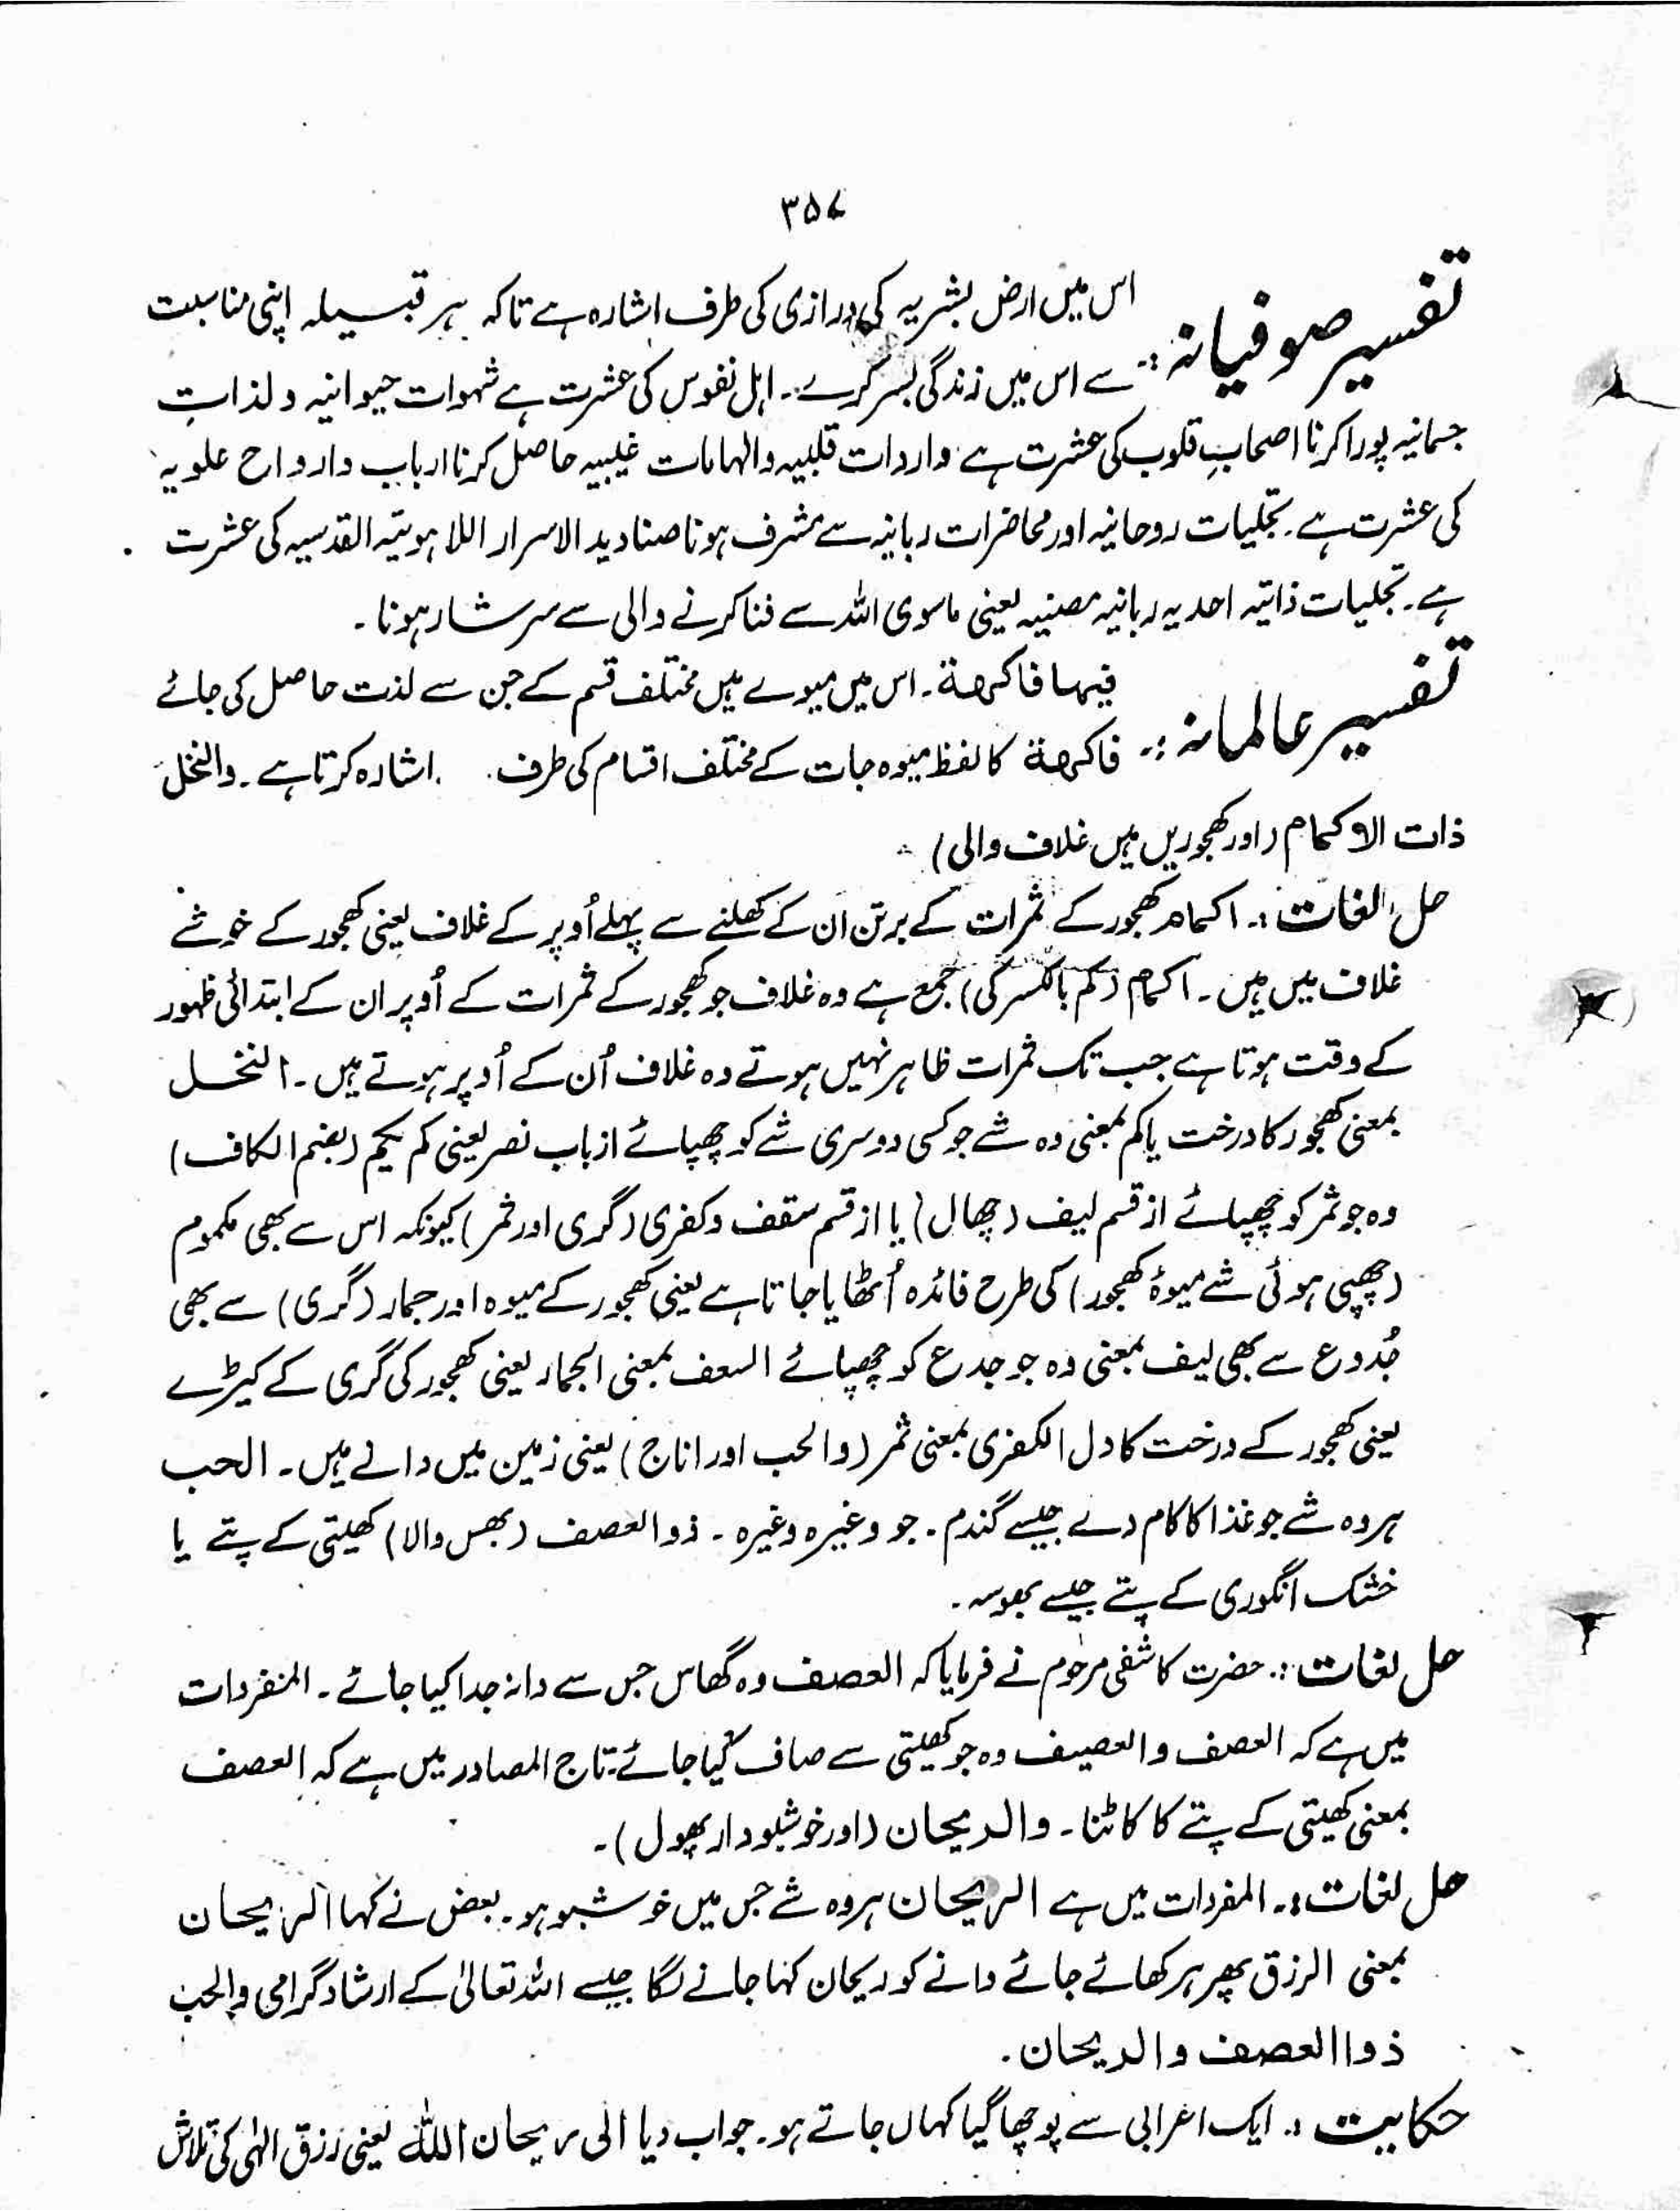 ۳۵۷
تفسیر صوفیانہ :۔ اس میں ارض بشریہ کی درازی کی طرف اشارہ ہے تاکہ ہر قبیلہ اپنی مناسبت
سے اس میں زندگی بسر کرے۔ اہل نفوس کی عشرت ہے شہوات حیوانیہ و لذاتِ
جسمانیہ پورا کرنا اصحابِ قلوب کی عشرت ہے واردات قلبیہ والہامات غیبیہ حاصل کرنا ارباب دارواح علویہ
کی عشرت ہے۔ تجلیات روحانیہ اور محاضرات ربانیہ سے مشرف ہونا صنادید الاسرار اللاہوتیہ القدسیہ کی عشرت
ہے۔ تجلیات ذاتیہ احدیہ ربانیہ مصنیہ یعنی ماسوی اللہ سے فنا کرنے والی سے سرشار ہونا۔
تفسیر عالمانہ :۔ فیہا فاکھة۔ اس میں میوے ہیں مختلف قسم کے جن سے لذت حاصل کی جائے
فاکھة کا لفظ میوہ جات کے مختلف اقسام کی طرف اشارہ کرتا ہے۔ والنخل
ذات الاکمام (اور کھجوریں ہیں غلاف والی)
حل الغات :۔ اکمام کھجور کے ثمرات کے برتن ان کے کھلنے سے پہلے اُوپر کے غلاف یعنی کھجور کے خوشے
غلاف میں ہیں۔ اکمام (کم بالکسر کی) جمع ہے وہ غلاف جو کھجور کے ثمرات کے اُوپر ان کے ابتدائی ظہور
کے وقت ہوتا ہے جب تک ثمرات ظاہر نہیں ہوتے وہ غلاف اُن کے اُوپر ہوتے ہیں۔ النخل
بمعنی کھجور کا درخت یا کم بمعنی وہ شے جو کسی دوسری شے کو چھپائے از باب نصر یعنی کم یکم (بضم الکاف)
وہ جو ثمر کو چھپائے از قسم لیف (چھال) یا از قسم سقف وکفری (گری اور ثمر) کیونکہ اس سے بھی مکموم
(چھپی ہوئی شے میوۂ کھجور) کی طرح فائدہ اُٹھایا جاتا ہے یعنی کھجور کے میوہ اور جمار (گری) سے بھی
جُدوع سے بھی لیف بمعنی وہ جو جدع کو چھپائے السعف بمعنی الجمار یعنی کھجور کی گری کے کیڑے
یعنی کھجور کے درخت کا دل الکفری بمعنی ثمر (والحب اور اناج) یعنی زمین میں دانے ہیں۔ الحب
ہر وہ شے جو غذا کا کام دے جیسے گندم۔ جو وغیرہ وغیرہ۔ ذوالعصف (بھس والا) کھیتی کے پتے یا
خشک انگوری کے پتے جیسے بھوسہ۔
حل لغات :۔ حضرت کاشفی مرحوم نے فرمایا کہ العصف وہ گھاس جس سے دانہ جدا کیا جائے۔ المنفردات
میں ہے کہ العصف والعصیف وہ جو کھیتی سے صاف کیا جائے۔ تاج المصادر میں ہے کہ العصف
بمعنی کھیتی کے پتے کا کاٹنا۔ والریحان (اور خوشبودار پھول)۔
حل لغات :۔ المفردات میں ہے الریحان ہر وہ شے جس میں خوشبو ہو۔ بعض نے کہا الریحان
بمعنی الرزق پھر ہر کھائے جائے دانے کو ریحان کہا جانے لگا جیسے اللہ تعالیٰ کے ارشاد گرامی والحب
ذوا العصف والریحان۔
حکایت :۔ ایک اعرابی سے پوچھا گیا کہاں جاتے ہو۔ جواب دیا الی ریحان اللہ یعنی رزق الٰہی کی تلاش